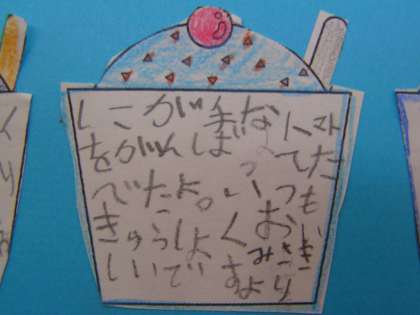 にが手なトマト
をがんばってた
べたよ。いつも
きゅうしょくおい
しいです みさきより